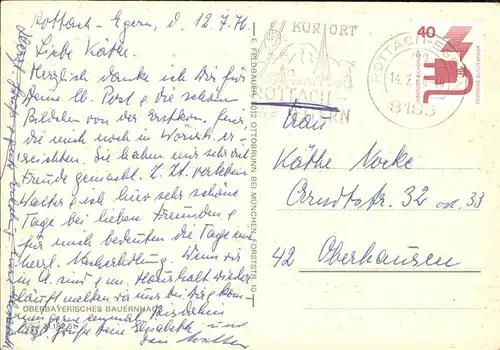 Rottach-Egern, d. 12.7.76
Liebe Käthe.
Herzlich danke ich Dir für
Deine lb. Post & die schönen
Bilder von der Erstkom. feier,
die mich noch in Wörish. er-
reichten. Sie haben mir sehr viel
Freude gemacht. Z. Zt. verleben
Walter & ich hier sehr schöne
Tage bei lieben Freunden &
für mich bedeuten die Tage eine
herrl. Nacherholung. Wenn wir
in A. sind & m. Haushalt wieder
läuft melden wir uns bei Dir &
Grüße Deine Elisabeth und
Walter
OBERBAYERISCHES BAUERNHAUS
E. FELDBAUER, 8012 OTTOBRUNN BEI MÜNCHEN, FORSTSTR. 10
KURORT
ROTTACH
EGERN
ROTTACH-EG
14.7
8183
40
DEUTSCHE BUNDESPOST
Frau
Käthe Nocke
Arndtstr. 32 od. 33
42 Oberhausen